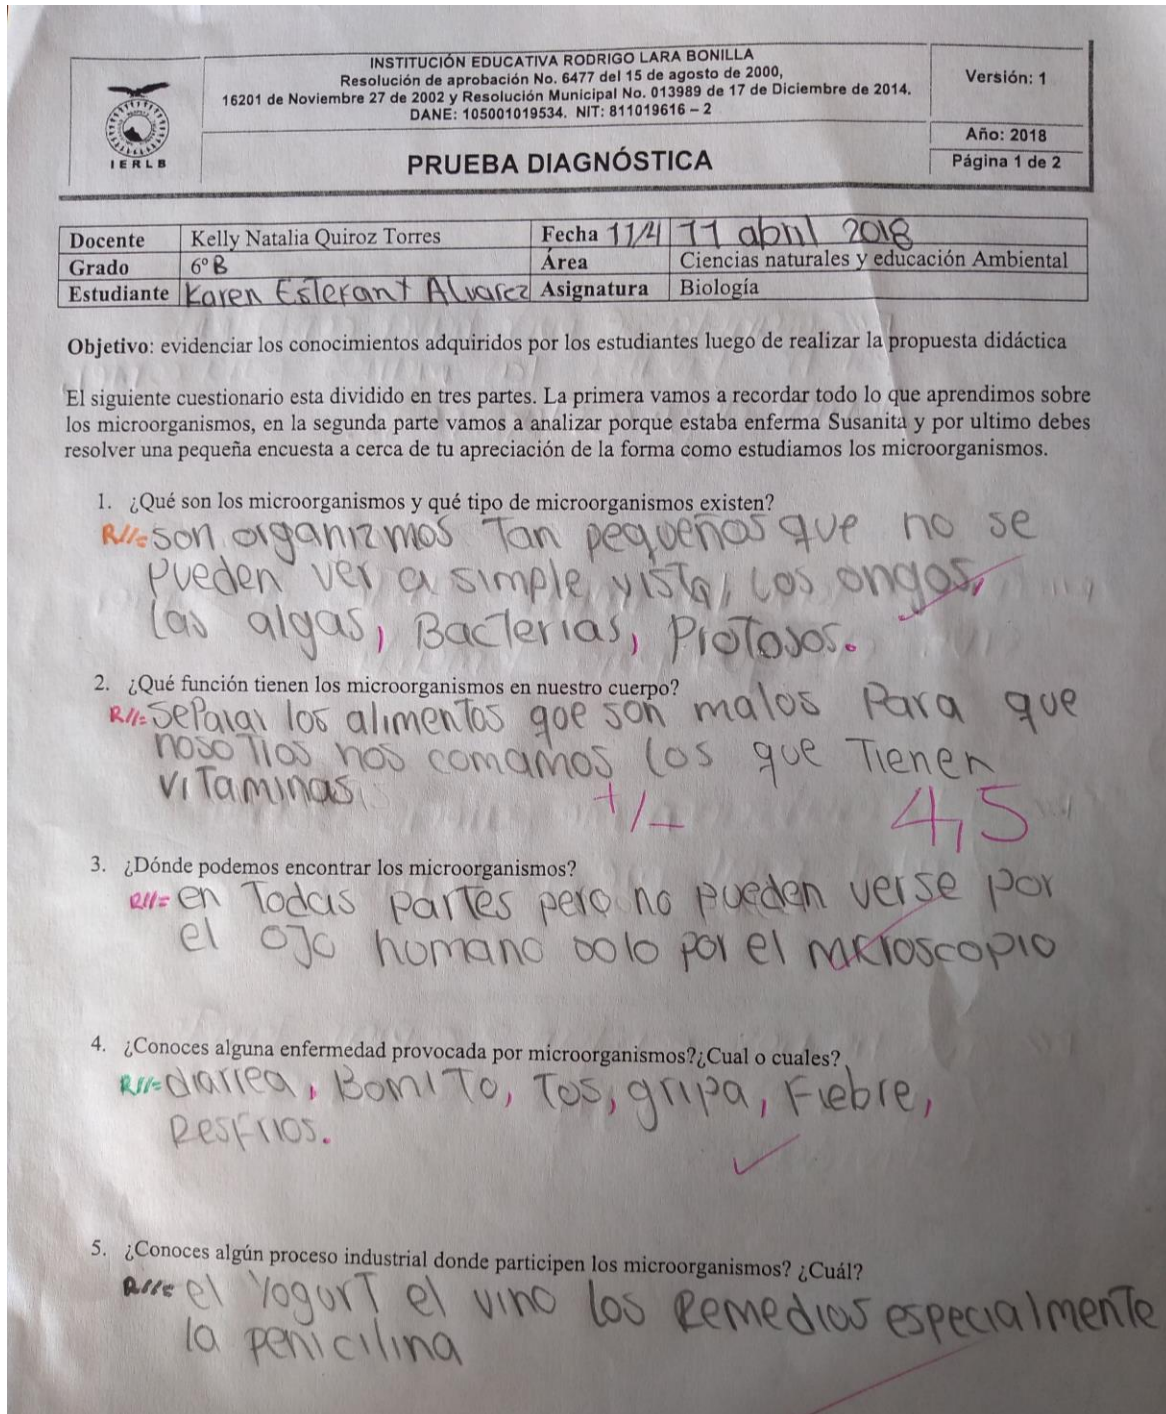 INSTITUCIÓN EDUCATIVA RODRIGO LARA BONILLA
Resolución de aprobación No. 6477 del 15 de agosto de 2000,
16201 de Noviembre 27 de 2002 y Resolución Municipal No. 013989 de 17 de Diciembre de 2014.
DANE: 105001019534. NIT: 811019616 – 2
Versión: 1
IERLB
PRUEBA DIAGNÓSTICA
Año: 2018
Página 1 de 2
Docente Kelly Natalia Quiroz Torres Fecha 11/4 11 abril 2018
Grado 6° B Área Ciencias naturales y educación Ambiental
Estudiante Karen Estefant Alvarez Asignatura Biología
Objetivo: evidenciar los conocimientos adquiridos por los estudiantes luego de realizar la propuesta didáctica
El siguiente cuestionario esta dividido en tres partes. La primera vamos a recordar todo lo que aprendimos sobre
los microorganismos, en la segunda parte vamos a analizar porque estaba enferma Susanita y por ultimo debes
resolver una pequeña encuesta a cerca de tu apreciación de la forma como estudiamos los microorganismos.
1. ¿Qué son los microorganismos y qué tipo de microorganismos existen?
R//= son organizmos Tan pequeños que no se
pueden ver a simple vista, Los ongos,
las algas, Bacterias, Protosos.
2. ¿Qué función tienen los microorganismos en nuestro cuerpo?
R//= separar los alimentos qoe son malos para que
nosotros nos comamos los que Tienen
viTaminas.
+/- 4,5
3. ¿Dónde podemos encontrar los microorganismos?
R//= en Todas partes pero no pueden verse por
el ojo humano solo por el microscopio
4. ¿Conoces alguna enfermedad provocada por microorganismos?¿Cual o cuales?
R//= diarrea, BomiTo, Tos, gripa, Fiebre,
Resfrios.
5. ¿Conoces algún proceso industrial donde participen los microorganismos? ¿Cuál?
R//= el YogurT el vino los Remedios especialmente
la penicilina